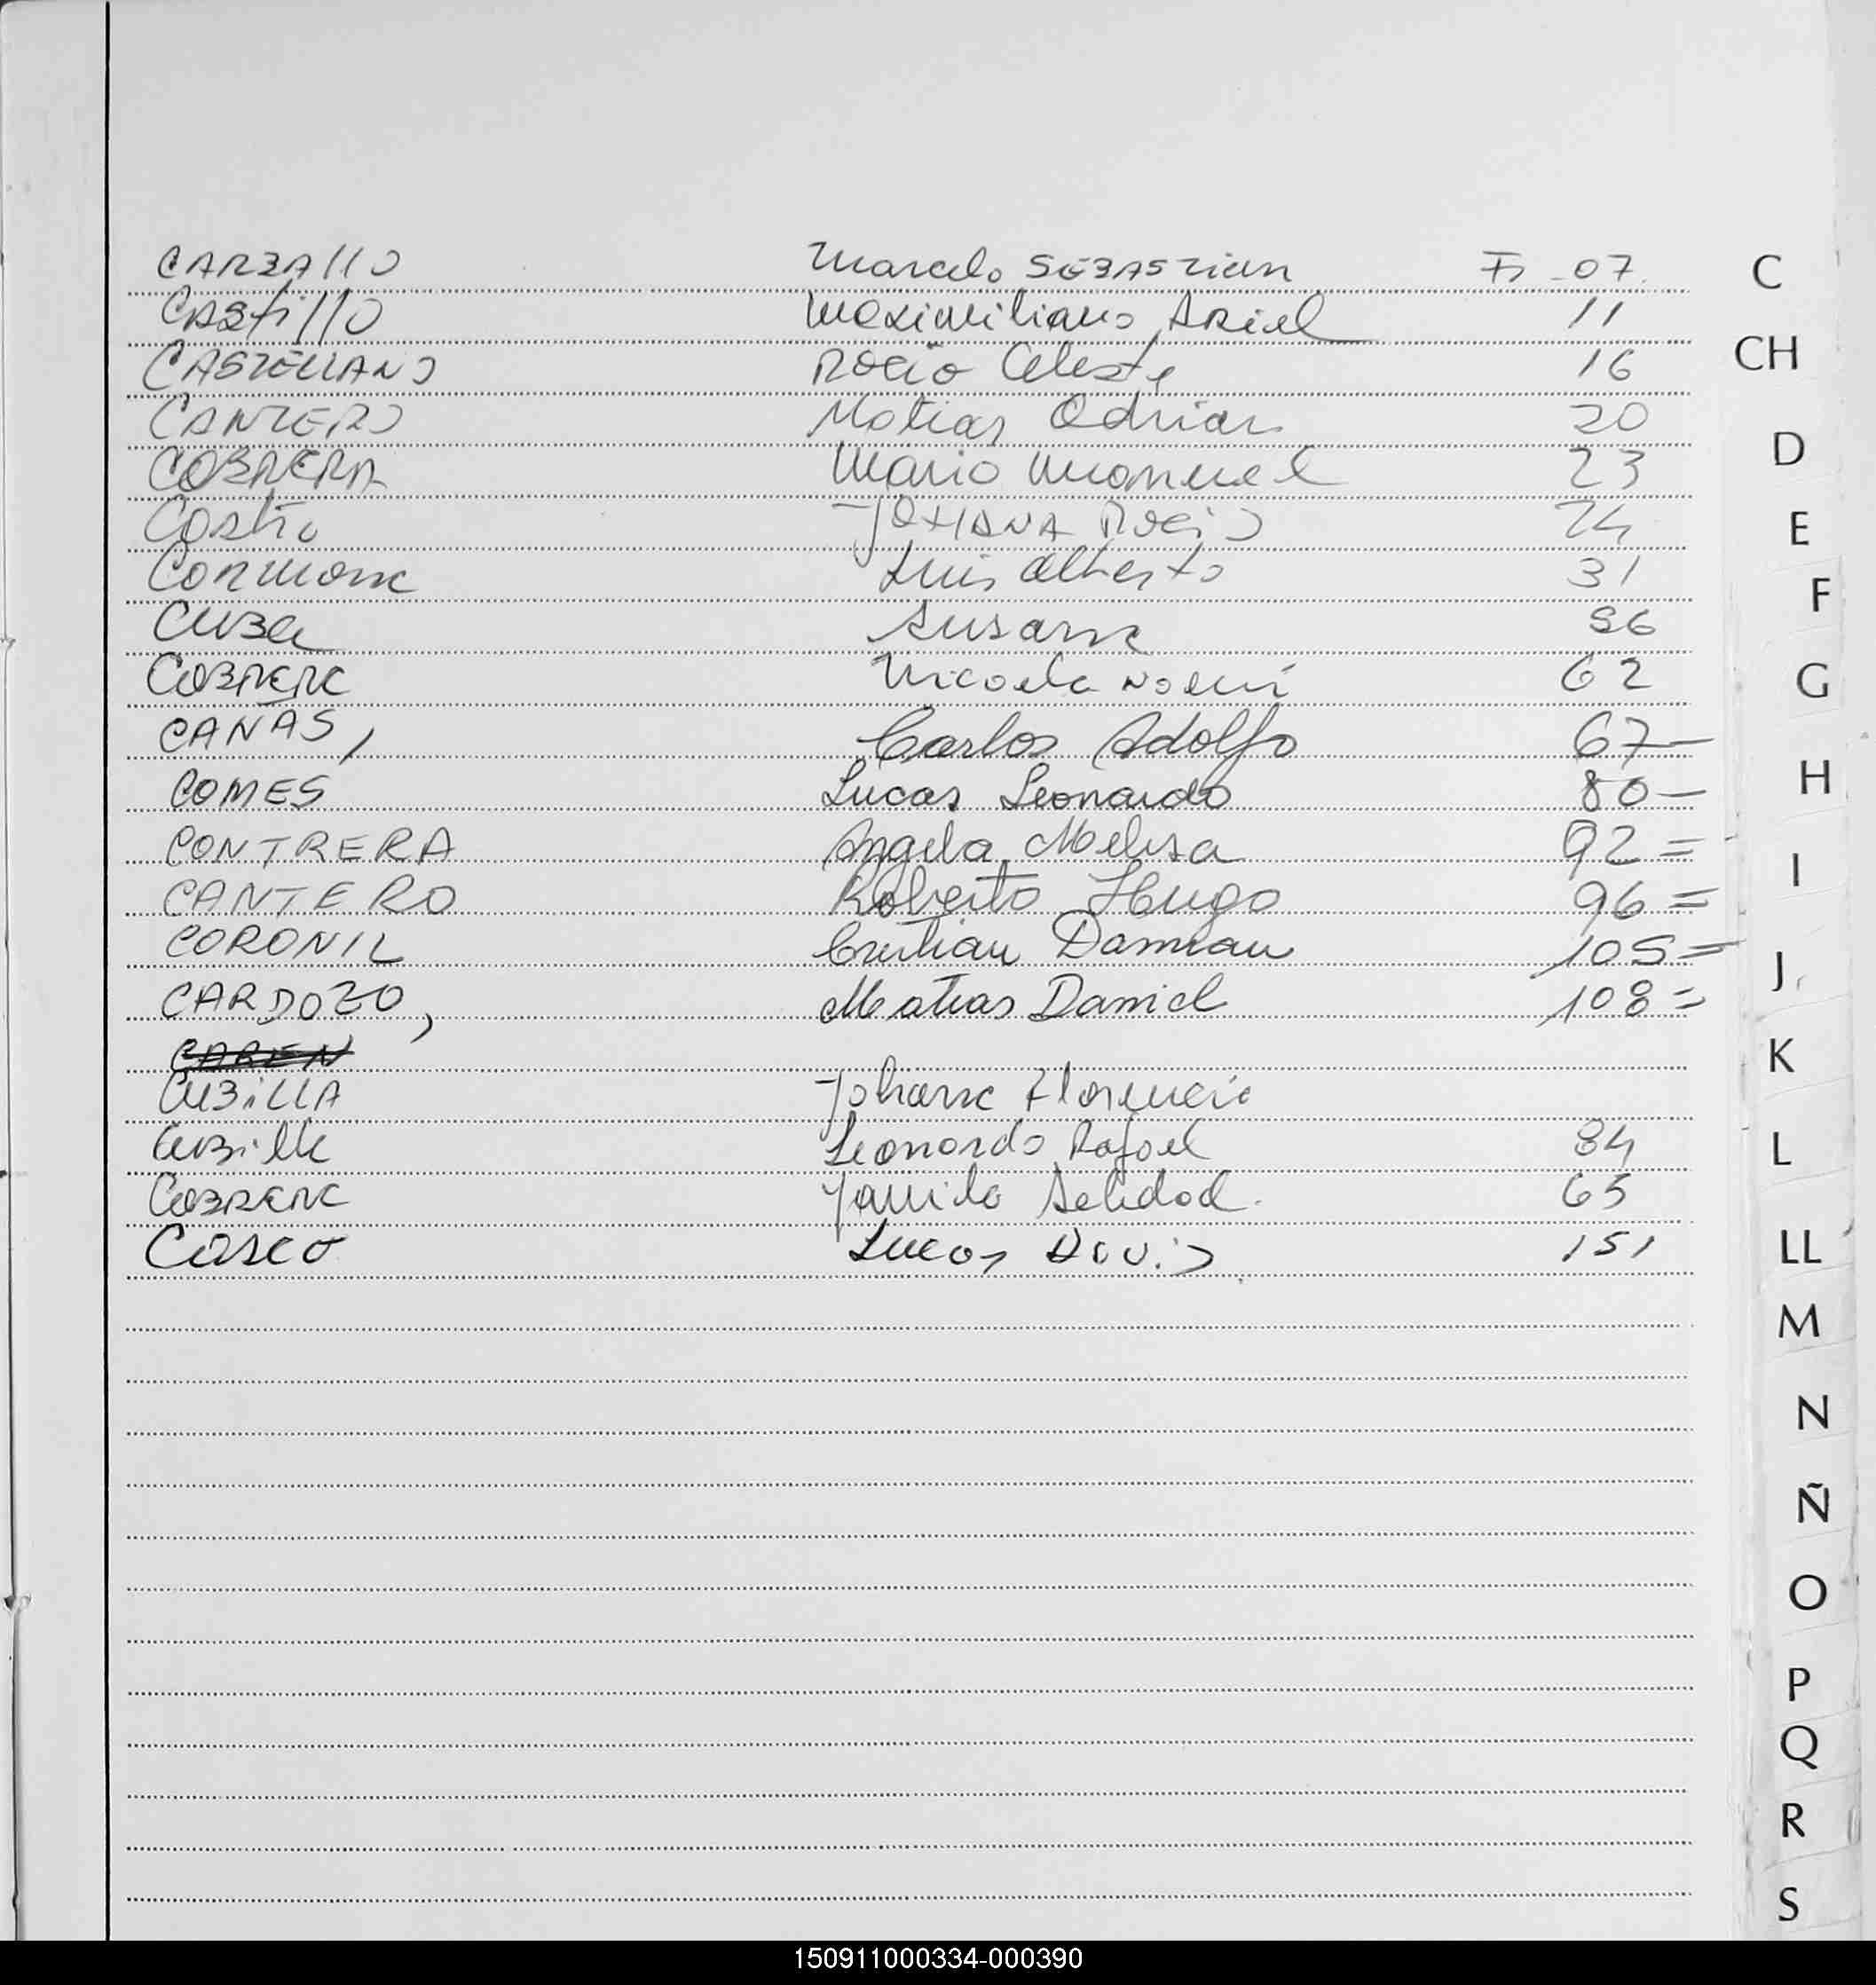 CARBALLO Marcelo SEBASTIAN F: -07. C
CASTILLO Maximiliano Ariel 11
CASTELLANO Rocio Celeste 16 CH
CANTERO Matias Adrian 20
CABRERA Mario Manuel 23 D
JOHANA Rocio 24 E
Carmona Luis Alberto 31
Cuba Susana 56 F
CABRERA Micaela Noemi 62 G
CAÑAS, Carlos Adolfo 67-
COMES Lucas Leonardo 80- H
CONTRERA Angela Melisa 92=
CANTERO Roberto Hugo 96= I
CORONIL Cristian Damian 105=
CARDOZO, Matias Daniel 108= J
CAREN K
CUBILLA Johana Florencia
Cubilla Leonardo Rafael 84 L
CABRERA Yamila Soledad 65
Casco Lucas David 151 LL
M
N
Ñ
O
P
Q
R
S
150911000334-000390